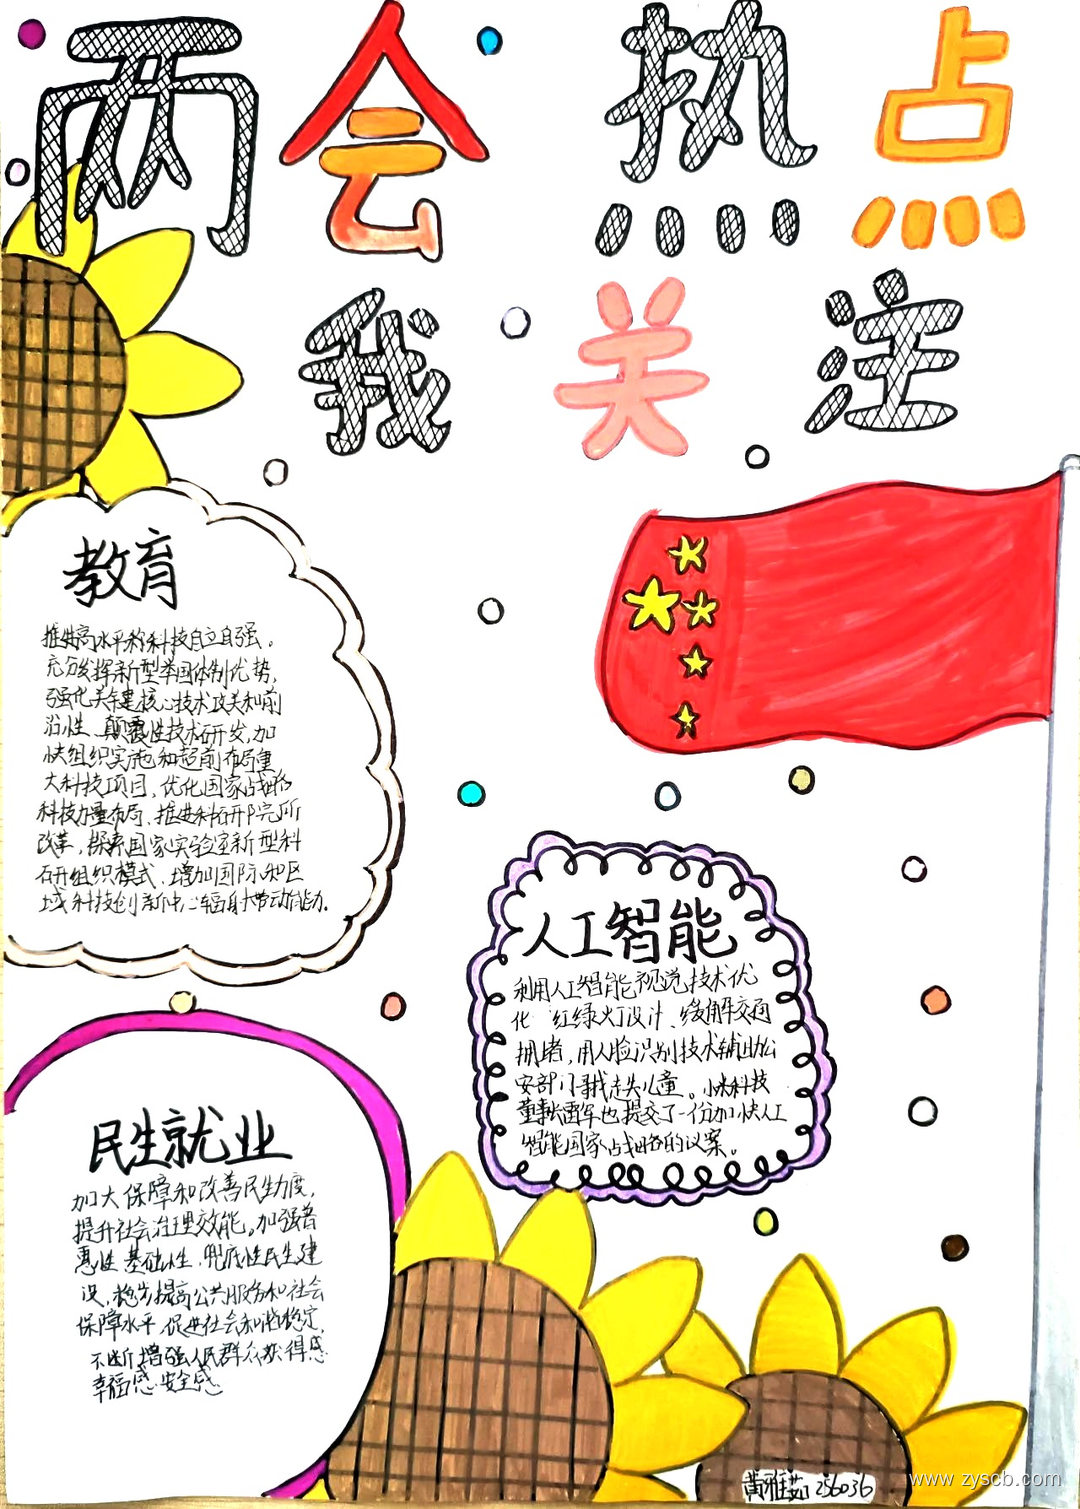 两会热点
我关注
教育
推进高水平科技自立自强。
充分发挥新型举国体制优势,
强化关键核心技术攻关和前
沿性、颠覆性技术研发,加
快组织实施和超前布局重
大科技项目,优化国家战略
科技力量布局、推进科研院所
改革,探索国家实验室新型科
研组织模式、增加国际和区
域科技创新中心辐射带动能力.
人工智能
利用人工智能视觉技术优
化 红绿灯设计、缓解交通
拥堵,用人脸识别技术辅助公
安部门寻找走失儿童。小米科技
董事长雷军也提交了一份加快人工
智能国家战略的议案。
民生就业
加大保障和改善民生力度,
提升社会治理效能。加强普
惠性 基础性、兜底性民生建
设,稳步提高公共服务和社会
保障水平 促进社会和谐稳定,
不断增强人民群众获得感
幸福感、安全感.
黄雅茹 256036
www.zyscb.com